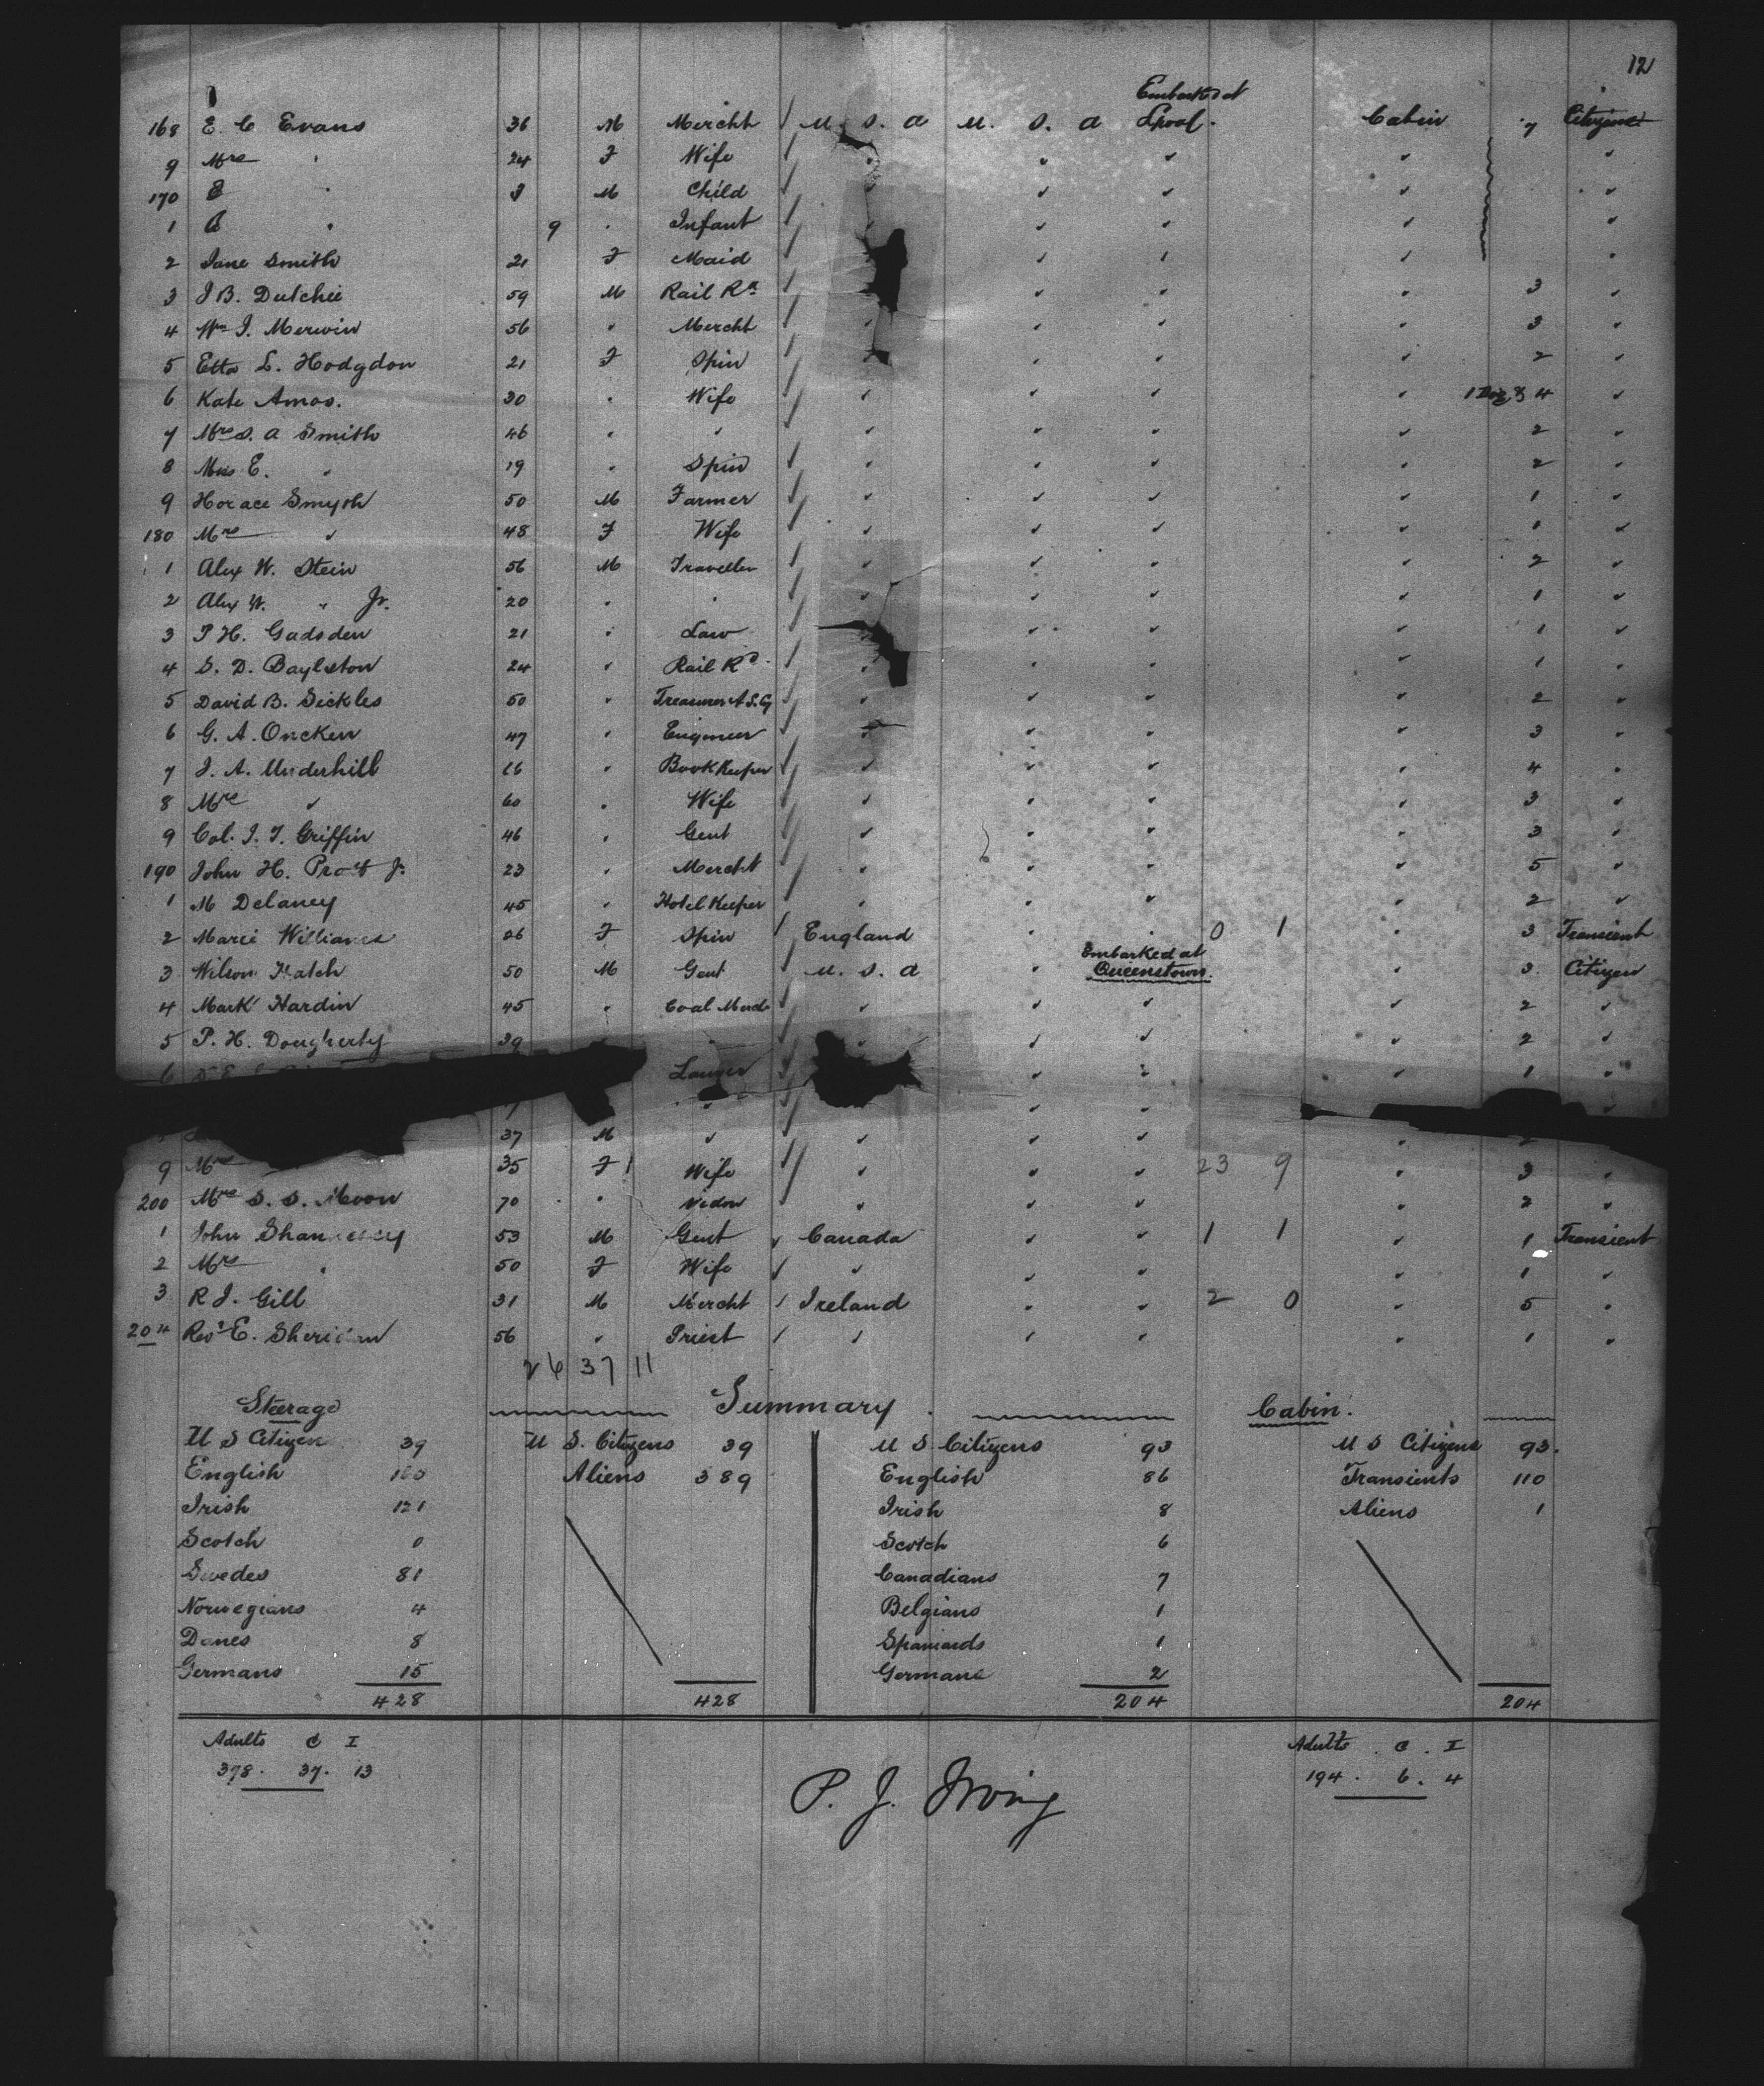 12
Embarked at
168 E. C Evans 36 M Mercht / U. S. A U. S. A Lpool. Cabin 7 Citizens
9 Mrs " 24 F Wife / ✓ ✓ ✓ ✓
170 E " 3 M Child / ✓ ✓ ✓ ✓
1 " 9 " Infant / ✓ ✓ ✓ ✓
2 Jane Smith 21 F Maid / ✓ ✓ ✓ "
3 J B. Dutchie 59 M Rail Rd / ✓ ✓ ✓ 3 ✓
4 Wm J. Merwin 56 " Mercht / ✓ ✓ ✓ 3 ✓
5 Etta L. Hodgdon 21 F Spin / ✓ ✓ ✓ 2 ✓
6 Kate Amos. 30 " Wife / ✓ ✓ ✓ ✓ 1 Dog & 4 ✓
7 Mrs S. A Smith 46 " " ✓ ✓ ✓ ✓ 2 ✓
8 Miss E. " 19 " Spin / ✓ ✓ ✓ ✓ 2 ✓
9 Horace Smyth 50 M Farmer / ✓ ✓ ✓ ✓ 1 ✓
180 Mrs " 48 F Wife / ✓ ✓ ✓ ✓ 1 ✓
1 Alex W. Stein 56 M Traveller / ✓ ✓ ✓ ✓ 2 ✓
2 Alex W. " Jr. 20 " " / ✓ ✓ ✓ ✓ 1 ✓
3 P H. Gadsden 21 " Law / ✓ ✓ ✓ 1 ✓
4 S. D. Boylston 24 " Rail Rd / ✓ ✓ ✓ ✓ 1 ✓
5 David B. Sickles 50 " Treasurer A S. Cy / ✓ ✓ ✓ ✓ 2 ✓
6 G. A. Oncken 47 " Engineer / ✓ ✓ ✓ ✓ 3 ✓
7 J. A. Underhill 66 " Book Keeper / ✓ ✓ ✓ ✓ 4 ✓
8 Mrs " 60 " Wife / ✓ ✓ ✓ ✓ 3 ✓
9 Col. J. T. Griffin 46 " Gent / ✓ ✓ ✓ ✓ 3 ✓
190 John H. Jr. 23 " Mercht / ✓ ✓ ✓ ✓ 5 ✓
1 M Delaney 45 " Hotel Keeper / ✓ ✓ ✓ ✓ 2 ✓
2 Marie Williams 26 F Spin / England " " 0 1 " 3 Transient
Embarked at
3 Wilson Hatch 50 M Gent U. S. A " Queenstown. " 3 Citizen
4 Mark Hardin 45 " Coal Merch / ✓ ✓ ✓ ✓ 2 ✓
5 P. H. Dougherty 39 / ✓ ✓ ✓ 2 ✓
6 Lawyer / ✓ ✓ ✓ 1 ✓
" / ✓ ✓ ✓
37 M " / ✓ ✓ ✓ ✓
9 Mrs 35 F 1 Wife / ✓ ✓ ✓ 23 9 ✓ 3 ✓
200 Mrs S. S. Moon 70 " Widow / ✓ ✓ ✓ ✓ 2 ✓
1 John Shannessy 53 M Gent Canada ✓ ✓ 1 1 ✓ 1 Transient
2 Mrs " 50 F Wife / ✓ ✓ ✓ ✓ 1 ✓
3 R J. Gill 31 M Mercht / Ireland " " 2 0 " 5 "
204 Revd E. Sheridan 56 " Priest / " " " " 1 "
26 37 11
Summary
Steerage
Cabin.
U S Citizen 39 U S. Citizens 39 U S Citizens 93 U S Citizens 93.
English 160 Aliens 389 English 86 Transients 110
Irish 121 Irish 8 Aliens 1
Scotch 0 Scotch 6
Swedes 81 Canadians 7
Norwegians 4 Belgians 1
Danes 8 Spaniards 1
Germans 15 Germans 2
428 428 204 204
Adults C I Adults. C. I
378. 37. 13 194. 6. 4
P. J. Irving